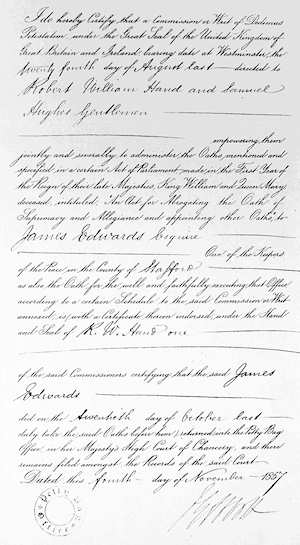 I do hereby Certify, that a Commission or Writ of Dedimus
Potestatem, under the Great Seal of the United Kingdom of
Great Britain and Ireland, bearing date at Westminster, the
twenty fourth day of August last — directed to
Robert William Hand and Samuel
Hughes Gentlemen
empowering them
jointly and severally to administer the Oaths, mentioned and
specified, in a certain Act of Parliament, made in the First Year of
the Reign of their late Majesties, King William and Queen Mary,
deceased, intituled "An Act for Abrogating the Oath of
Supremacy and Allegiance and appointing other Oaths," to
James Edwards Esquire
One of the Keepers
of the Peace in the County of Stafford
as also the Oath for the well and faithfully executing that Office
according to a certain Schedule to the said Commission or Writ
annexed, is, with a Certificate thereon indorsed, under the Hand
and Seal of R. W. Hand one
of the said Commissioners certifying that the said James
Edwards
did on the twentieth day of October last
duly take the said Oaths before him, returned with the Petty Bag
Office in her Majesty's High Court of Chancery, and there
remains filed amongst the Records of the said Court
Dated this fourth day of November 1857